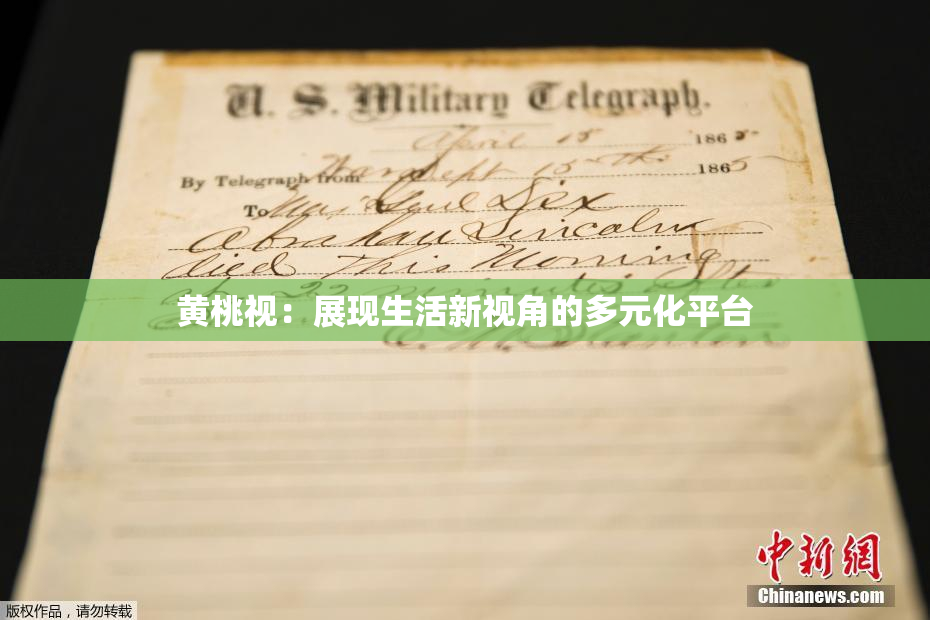 U. S. Military Telegraph.
April 15 1865
By Telegraph from War Dept 15th 1865
To Maj Genl Dix
Abraham Lincoln
died This Morning
at 22 minutes after
黄桃视：展现生活新视角的多元化平台
E. M. Stanton
中新网
Chinanews.com
版权作品，请勿转载